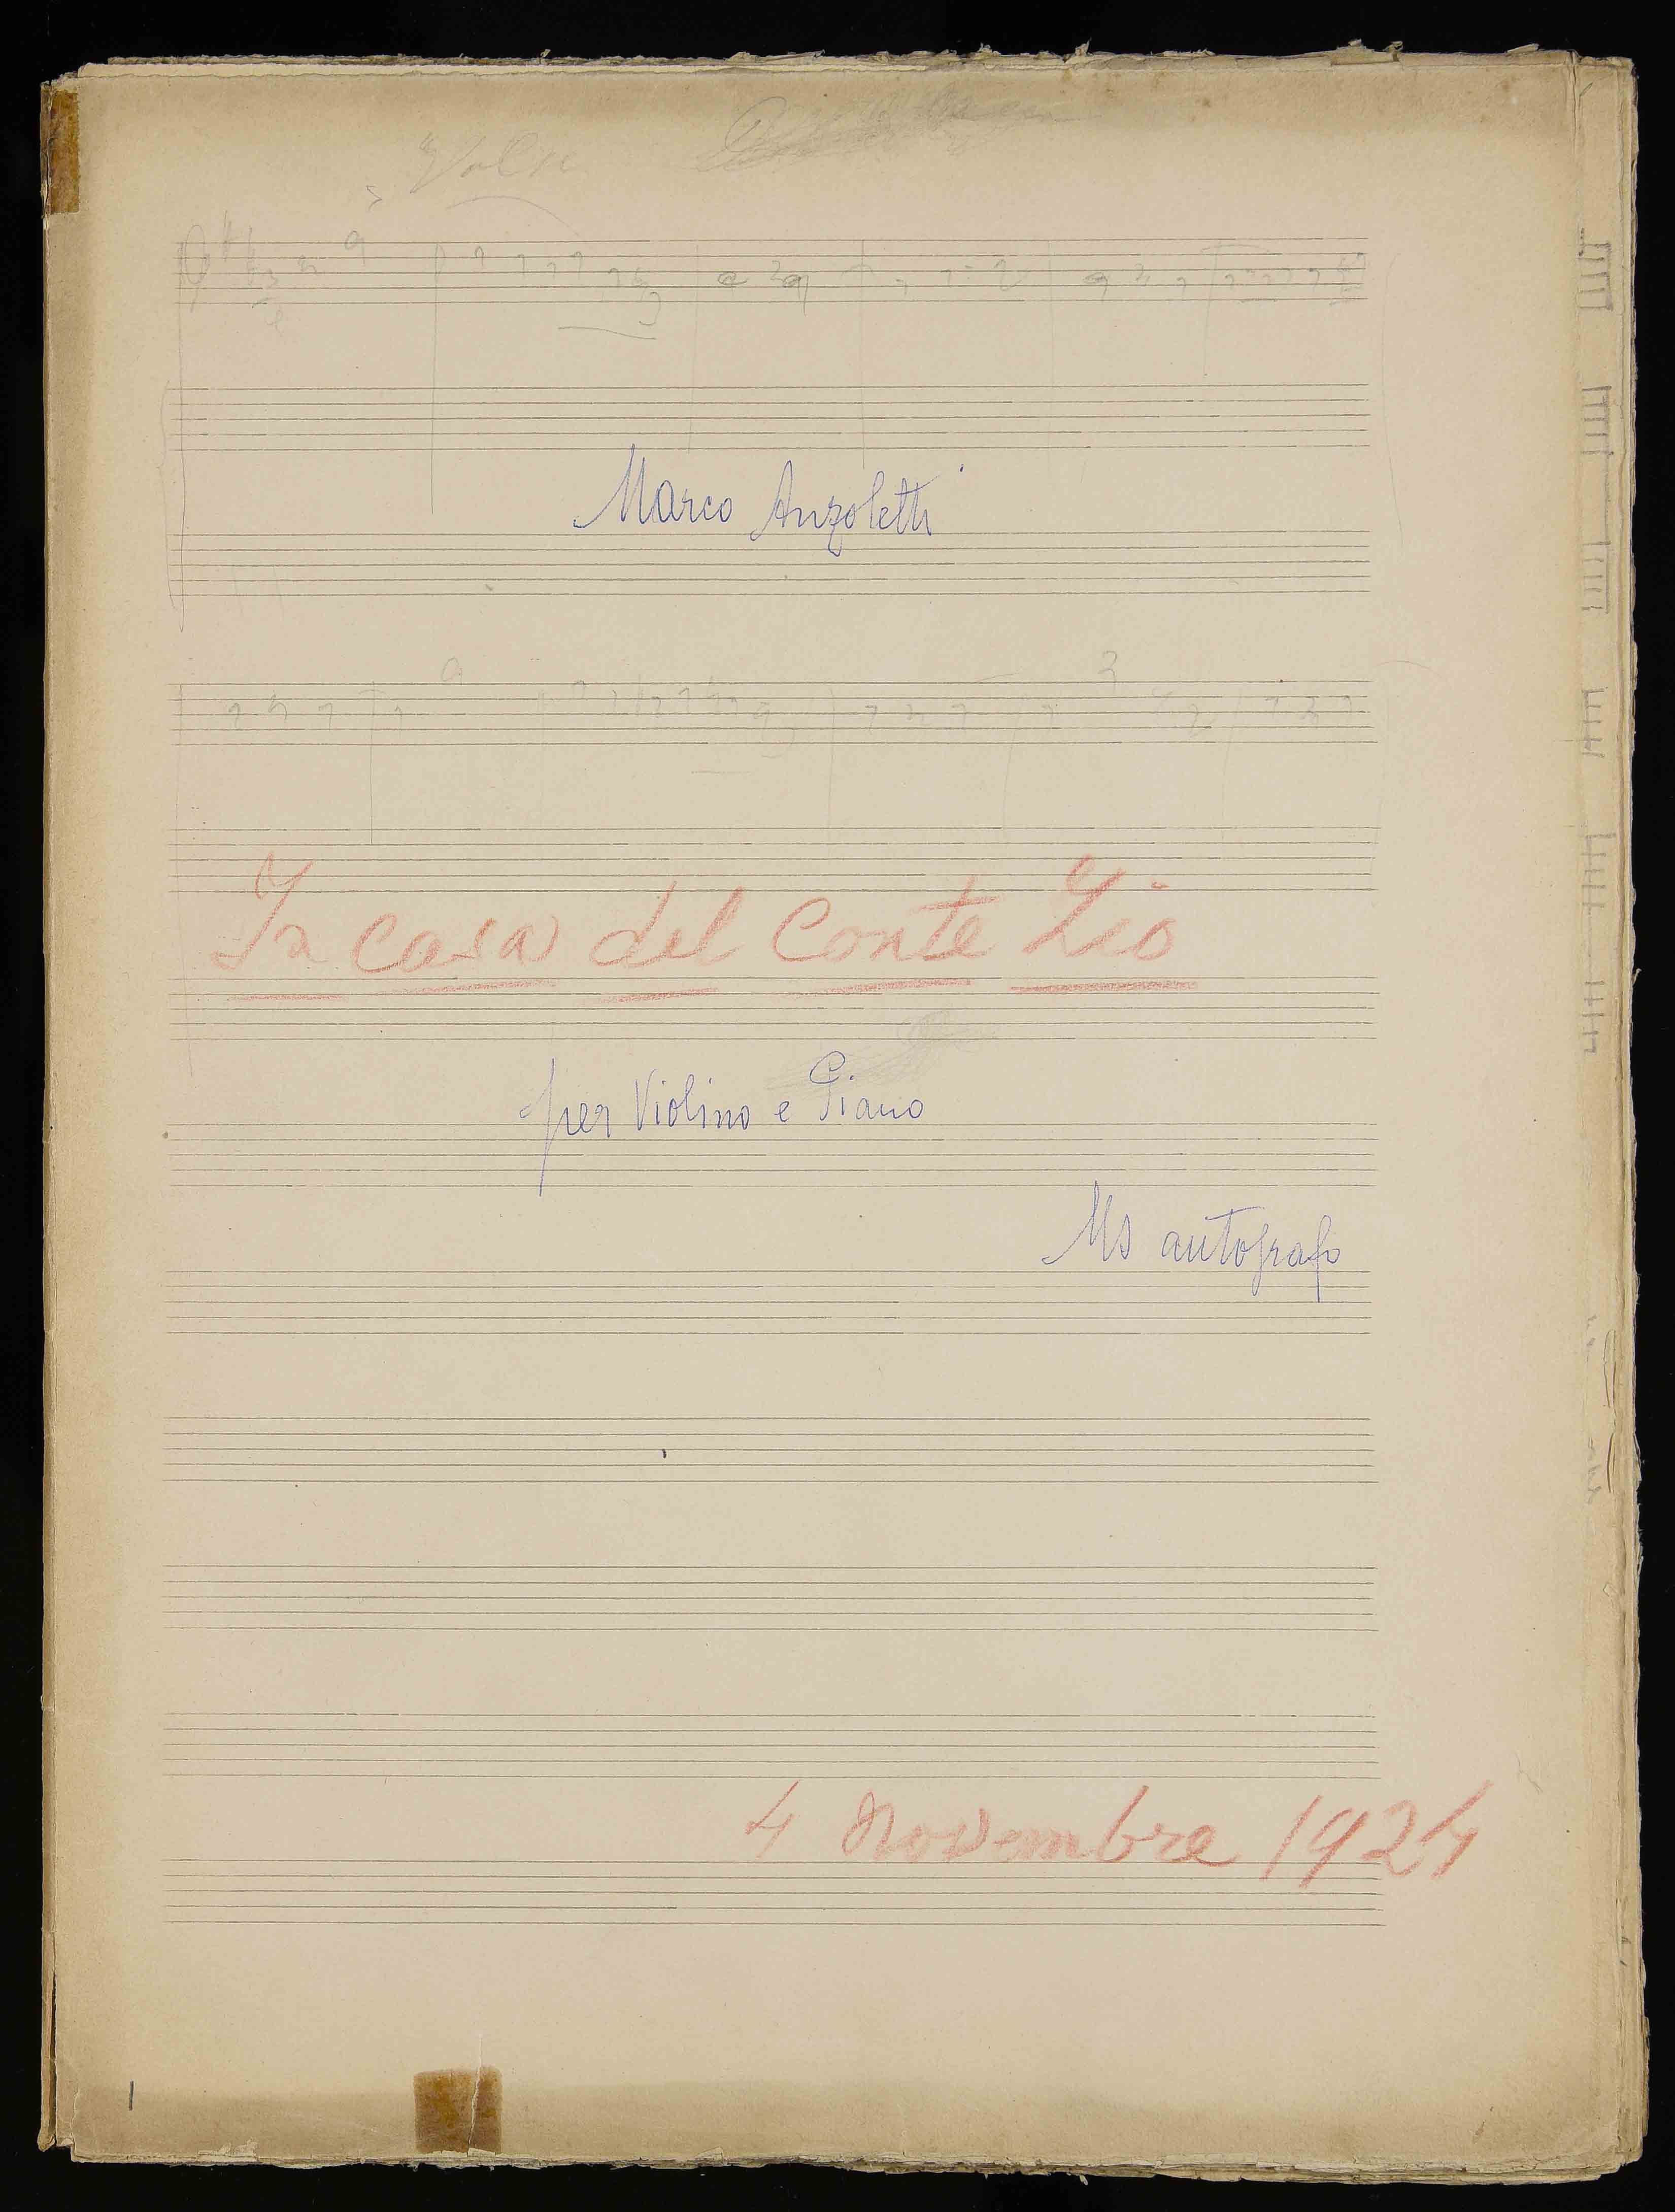 Valse
Marco Anzoletti
In casa del Conte Zio
per Violino e Piano
Ms autografo
4 Novembre 1924
1